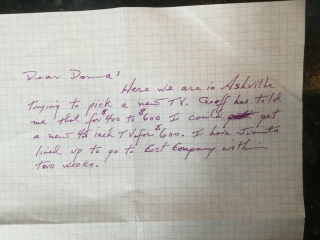 Dear Donna:
Here we are in Ashville
trying to pick a new TV. Geoff has told
me that for $400 to $600 I could get
a new 42 inch TV for $600. I have Juanita
lined up to go to Cost Company within
two weeks.